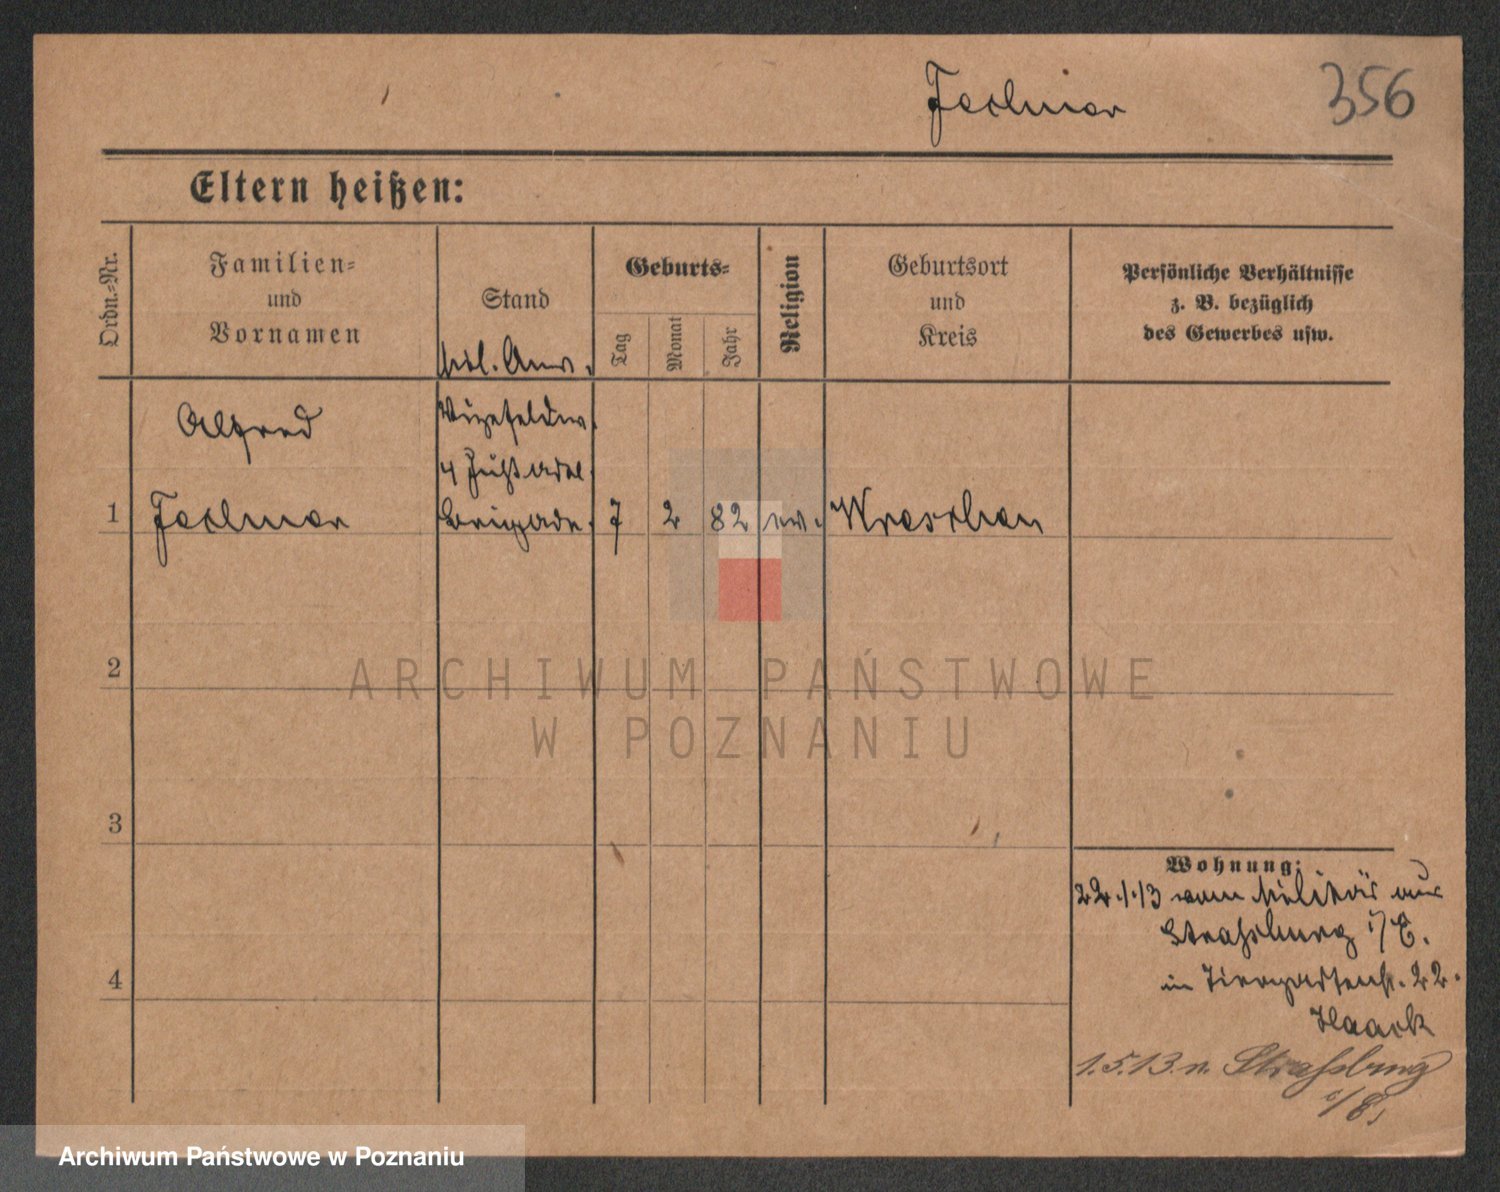 356
Eltern heißen:
Ordn.-Nr.
Familien-
und
Vornamen
Stand
Geburts-
Tag
Monat
Jahr
Religion
Geburtsort
und
Kreis
Persönliche Verhältnisse
z. B. bezüglich
des Gewerbes usw.
Mil. Anw.
Alfred
Vizefeldw.
Brigade.
1
7
2
82
ev.
Wreschen
2
3
4
Wohnung:
22.1.13 vom Militär aus
Strassburg i/E.
in Tiergartenstr. 22.
Haack
1.5.13. n. Strassburg
i/E.
ARCHIWUM PAŃSTWOWE
W POZNANIU
Archiwum Państwowe w Poznaniu